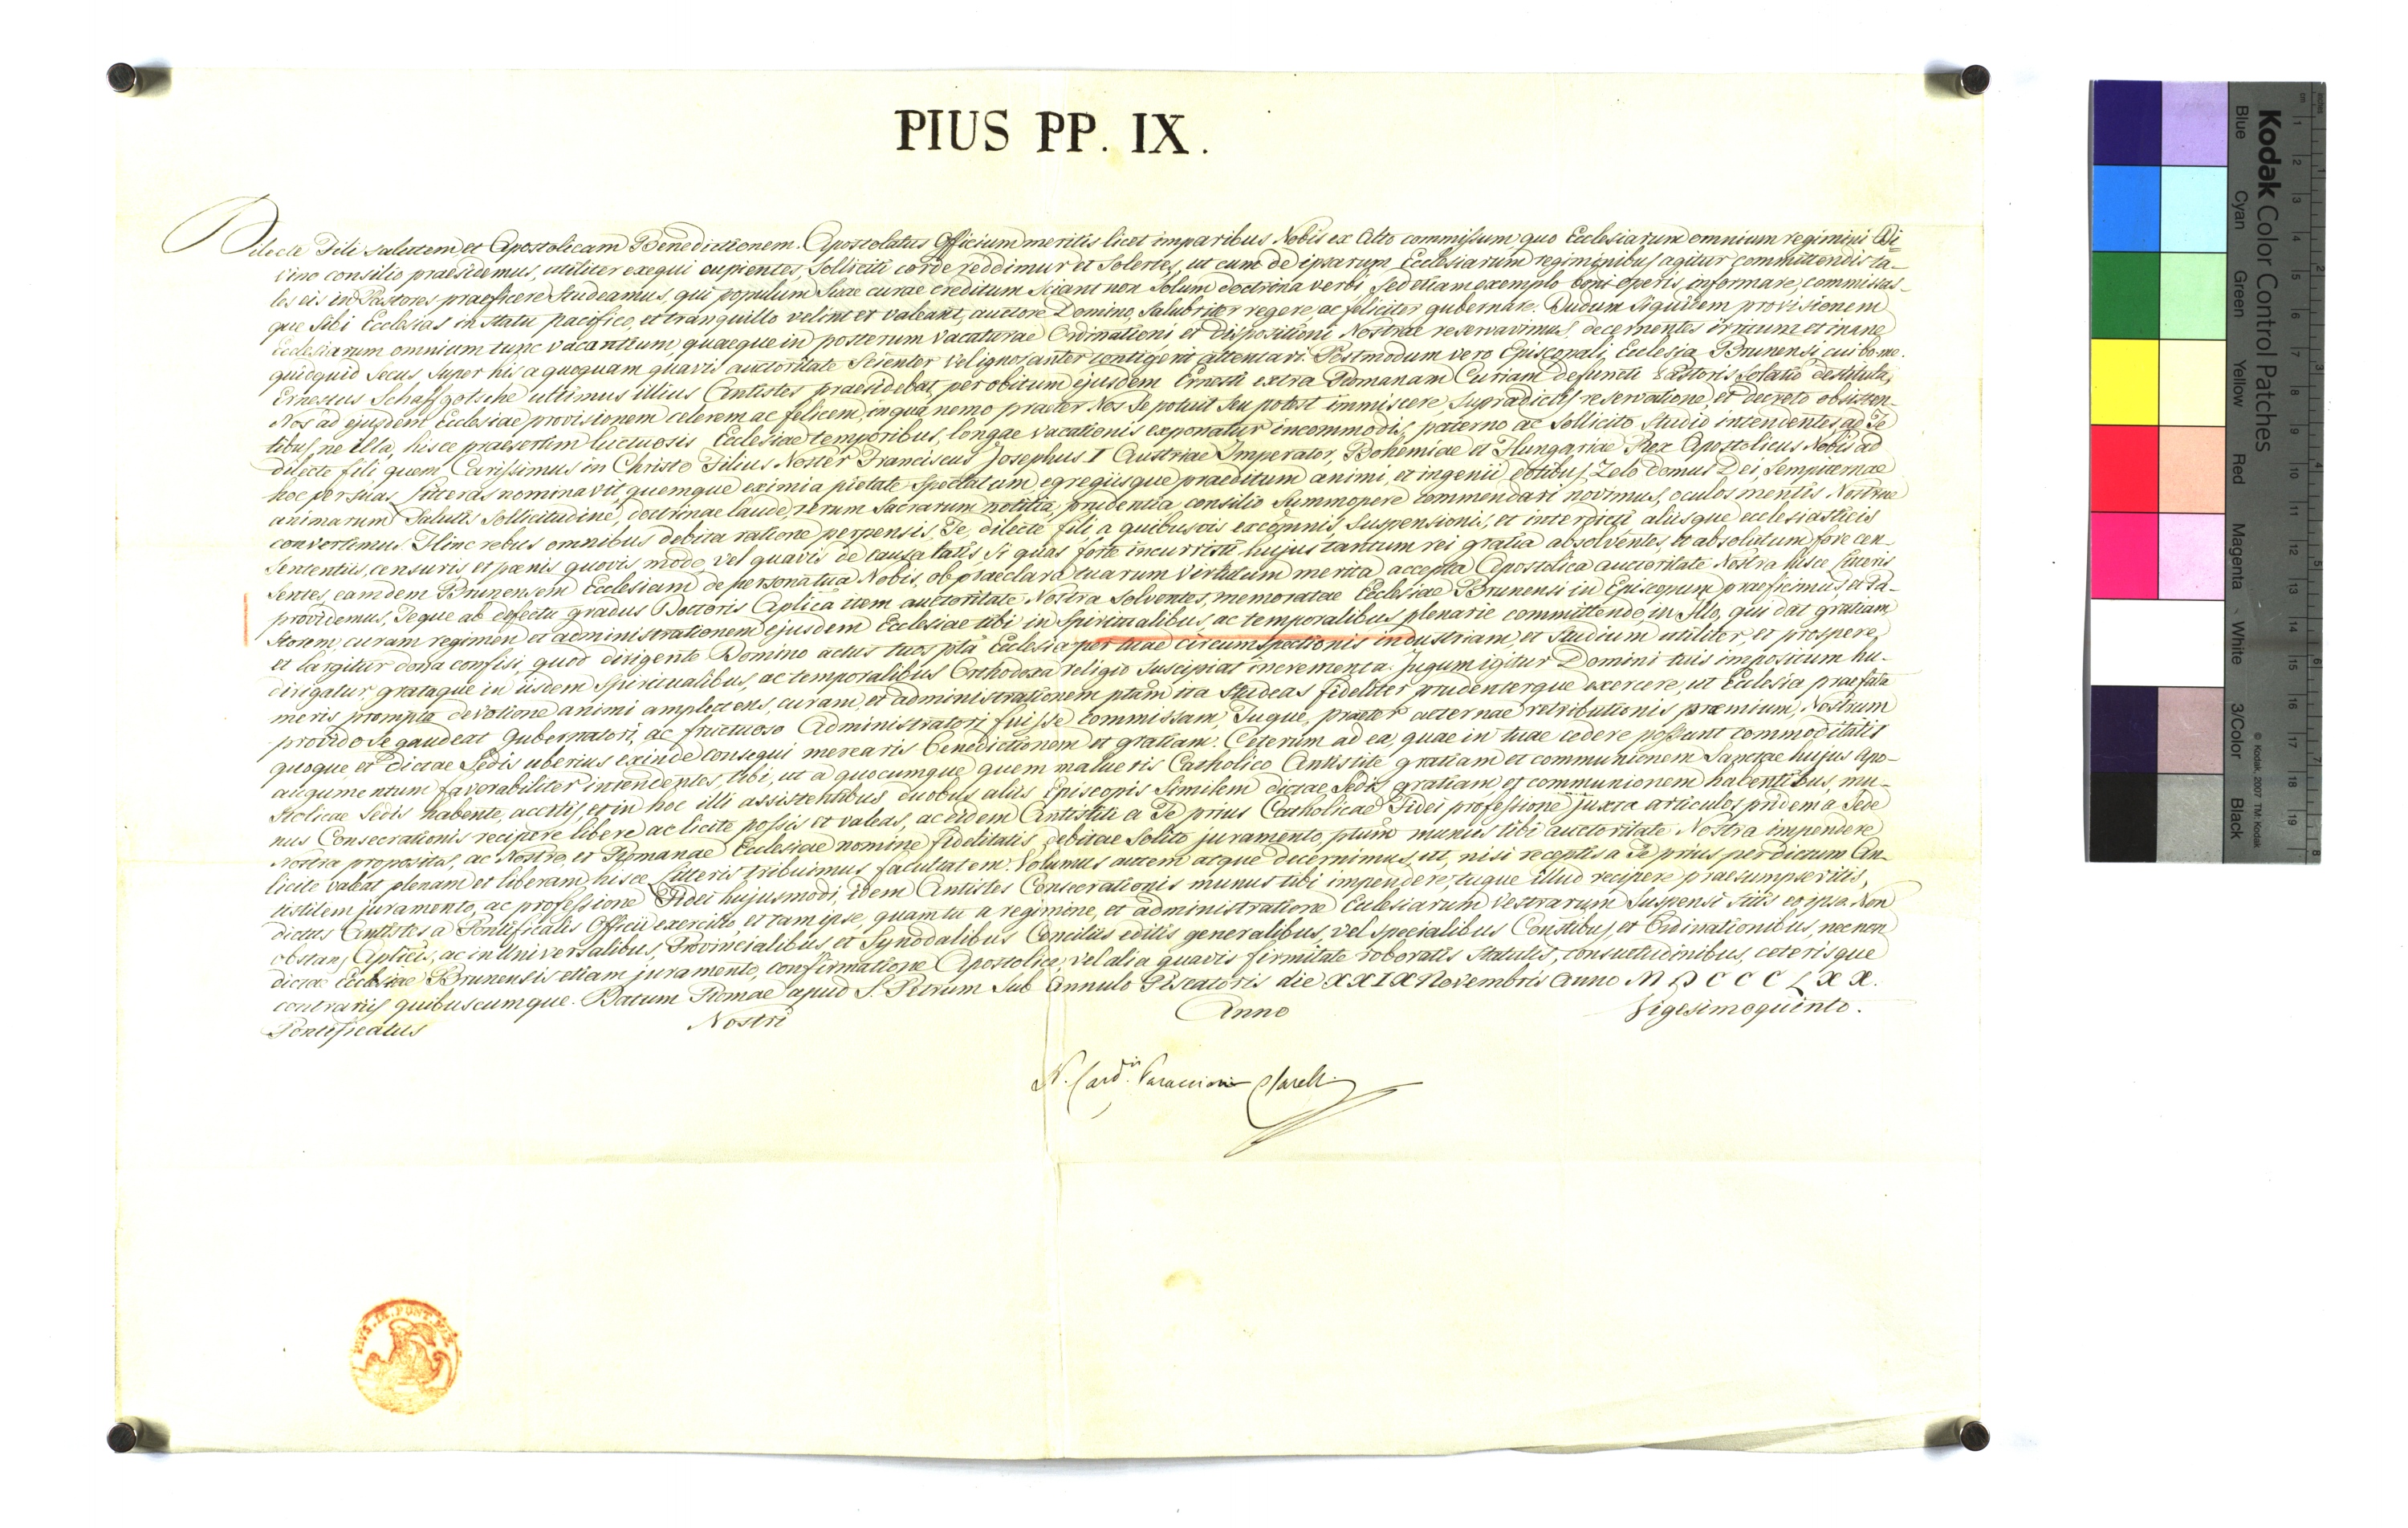 PIUS PP. IX.
Dilecte Fili salutem et Apostolicam Benedictionem. Apostolatus Officium meritis licet imparibus Nobis ex Alto commissum, quo Ecclesiarum omnium regimini Di=
vino consilio praesidemus, utiliter exequi cupientes, solliciti corde reddimur et solertes, ut cum de ipsarum Ecclesiarum regiminibus agitur committendis ta-
les eis in Pastores praeficere studeamus, qui populum suae curae creditum sciant non solum doctrina verbi sed etiam exemplo boni operis, informare, commissas-
que sibi Ecclesias in statu pacifico, et tranquillo velint et valeant, auctore Domino, salubriter regere, ac feliciter gubernare. Dudum siquidem provisionem
Ecclesiarum omnium tunc vacantium, quaeque in posterum vacaturae Ordinationi et dispositioni Nostrae reservavimus, decernentes irritum et inane
quidquid secus super his a quoquam quavis auctoritate scienter vel ignoranter contigerit attentari. Postmodum vero Episcopali Ecclesia Brunensi cui bo: me:
Ernestus Schaffgotsche ultimus illius Antistes praesidebat, per obitum ejusdem Ernesti extra Romanam Curiam defuncti Pastoris solatio destituta,
Nos ad ejusdem Ecclesiae provisionem celerem ac felicem, in qua nemo praeter Nos se potuit seu potest immiscere, supradictis reservatione, et decreto obsisten-
tibus, ne illa, hisce praesertim luctuosis Ecclesiae temporibus, longae vacationis exponatur incommodis, paterno ac sollicito studio intendentes, ad Te
dilecte fili, quem Carissimus in Christo Filius Noster Franciscus Josephus I Austriae Imperator, Bohemiae et Hungariae Rex Apostolicus Nobis ad
hoc per suas Litteras nominavit, quemque eximia pietate spectatum egregiisque praeditum animi, et ingenii dotibus, Zelo domus Dei, sempiternae
animarum salutis sollicitudine, doctrinae laude, rerum sacrarum notitia, prudentia, consilio summopere commendari novimus, oculos mentis Nostrae
convertimus. Hinc rebus omnibus debita ratione perpensis, Te, dilecte fili, a quibusvis excomnis, suspensionis, et interdicti, aliisque ecclesiasticis
sententiis, censuris et poenis quovis modo, vel quavis de causa latis, si quas forte incurristi hujus tantum rei gratia absolventes, et absolutum fore cen-
sentes, eamdem Brunensem Ecclesiam de persona tua Nobis, ob praeclara tuarum virtutum merita accepta Apostolica auctoritate Nostra hisce Litteris
providemus, Teque ab defectu gradus Doctoris Aplica item auctoritate Nostra solventes, memoratae Ecclesiae Brunensi in Episcopum praeficimus, et Pa-
storem, curam regimen et administrationem ejusdem Ecclesiae tibi in spiritualibus, ac temporalibus plenarie committendo, in Illo, qui dat gratiam
et largitur dona confisi, quod dirigente Domino actus tuos pta Ecclesia per tuae circumspectionis industriam, et studium utiliter, et prospere,
dirigatur, grataque in iisdem spiritualibus, ac temporalibus Orthodoxa religio suscipiat incrementa. Jugum igitur Domini tuis impositum hu-
meris prompta devotione animi amplectens, curam, et administrationem ptam ita studeas fideliter prudenterque exercere, ut Ecclesia praefata
provido se gaudeat Gubernatori, ac fructuoso Administratori fuisse commissam, Tuque, praeter aeternae retributionis praemium, Nostram
quoque, et dictae Sedis uberius exinde consequi merearis benedictionem et gratiam. Ceterum ad ea, quae in tuae cedere possunt commoditatis
augumentum favorabiliter intendentes, tibi, ut a quocumque, quem malueris Catholico Antistite gratiam et communionem Sanctae hujus Apo-
stolicae Sedis habente, accitis, et in hoc illi assistentibus duobus aliis Episcopis similem dictae Sedis gratiam, et communionem habentibus, mu-
nus Consecrationis recipere libere ac licite possis et valeas, ac eidem Antistiti a Te prius Catholicae Fidei professione juxta articulos pridem a Sede
Nostra propositos, ac Nostro, et Romanae Ecclesiae nomine fidelitatis debitae solito juramento, ptum munus tibi auctoritate Nostra impendere
licite valeat plenam et liberam hisce Litteris tribuimus facultatem. Volumus autem atque decernimus, ut, nisi receptis a Te prius per dictum An-
tistitem juramento, ac professione Fidei hujusmodi, idem Antistes Consecrationis munus tibi impendere, tuque illud recipere praesumpseritis,
dictus Antistes a Pontificalis Officii exercitio, et tam ipse, quam tu a regimine, et administratione Eclesiarum vestrarum suspensi sitis eo ipso. Non
obstan, Aplicis, ac in Universalibus, Provincialibus et Synodalibus Conciliis editis generalibus, vel specialibus Constibus, et Ordinationibus, nec non
dictae Ecclesiae Brunensis etiam juramento, confirmatione Apostolica, vel alia quavis firmitate roboratis statutis, consuetudinibus, ceterisque
contrariis quibuscumque. Datum Romae apud S. Petrum sub Annulo Piscatoris die XXIX Novembris Anno MDCCCLXX.
Pontificatus Nostri Anno Vigesimoquinto.
N. Card. Paracciani Clarelli
PIUS. IX. PONT. MAX
Kodak Color Control Patches
Blue Cyan Green Yellow Red Magenta White 3/Color Black
© Kodak, 2007 TM: Kodak
cm 1 2 3 4 5 6 7 8 9 10 11 12 13 14 15 16 17 18 19
inches 1 2 3 4 5 6 7 8